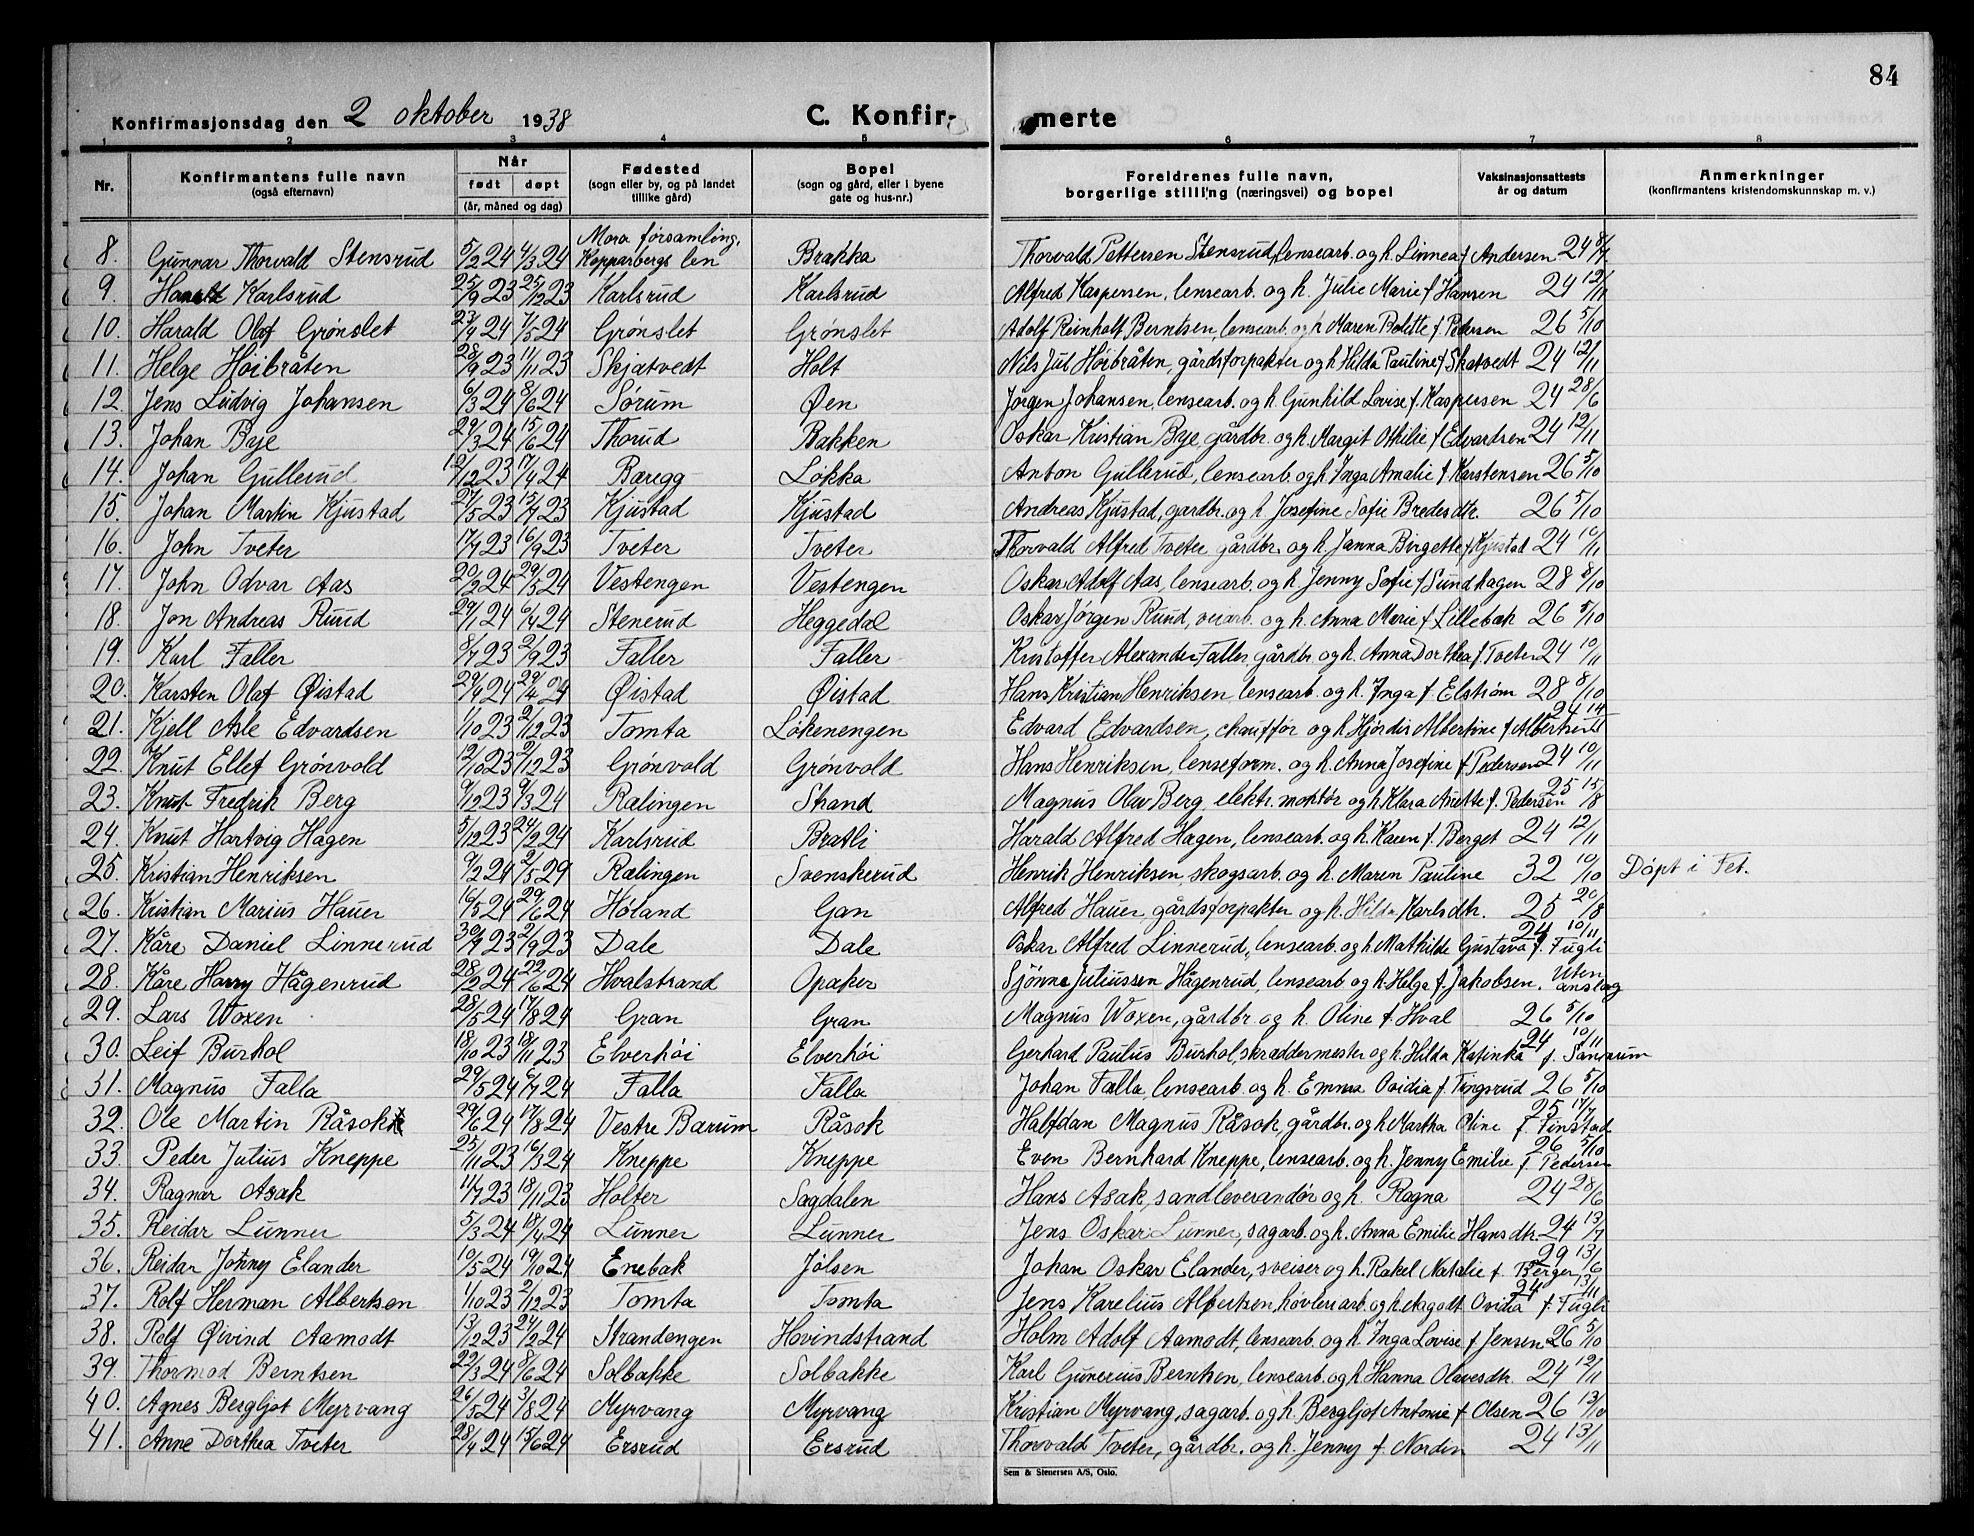 84
Konfirmasjonsdag den 2 oktober 1938 C. Konfir- merte
1 2 3 4 5 6 7 8
Nr. Konfirmantens fulle navn (også efternavn) Når født døpt (år, måned og dag) Fødested (sogn eller by, og på landet tillike gård) Bopel (sogn og gård, eller i byene gate og hus-nr.) Foreldrenes fulle navn, borgerlige stilling (næringsvei) og bopel Vaksinasjonsattests år og datum Anmerkninger (konfirmantens kristendomskunnskap m. v.)
8. Gunnar Thorvald Stensrud 5/2 24 4/3 24 Mora församling, Kopparbergs len Brakka Thorvald Pettersen Stensrud, lensearb. og h. Linnea f. Andersen 24 8/7
9. Harald Karlsrud 25/9 23 25/12 23 Karlsrud Karlsrud Alfred Kaspersen, lensearb. og h. Julie Marie f. Hansen 24 12/11
10. Harald Olaf Grönslet 23/4 24 7/5 24 Grönslet Grönslet Adolf Reinholt Berntsen, lensearb. og h Maren Bolette f. Pedersen 26 5/10
11. Helge Höibråten 28/9 23 11/11 23 Skjatvedt Holt Nils Jul Höibråten, gårdsforpakter og h Hilda Pauline f Skatvedt 24 12/11
12. Jens Ludvig Johansen 6/3 24 8/6 24 Sørum Øen Jørgen Johansen, lensearb. og h. Gunhild Lovise f. Kaspersen 24 28/6
13. Johan Bye 29/3 24 15/6 24 Thorud Bakken Oskar Kristian Bye gårdbr. og h. Margit Othilie f Edvardsen 24 12/11
14. Johan Gullerud 12/12 23 17/4 24 Bæregg Løkka Anton Gullerud, lensearb. og h. Inga Amalie f Karstensen 26 5/10
15. Johan Martin Kjustad 27/5 23 15/7 23 Kjustad Kjustad Andreas Kjustad, gardbr. og h. Josefine Sofie Bredesdtr. 26 5/10
16. John Tveter 17/7 23 16/9 23 Tveter Tveter Thorvald Alfred Tveter gårdbr. og h. Janna Birgette f Kjustad 24 10/11
17. John Odvar Aas 20/2 24 29/5 24 Vestengen Vestengen Oskar Adolf Aas, lensearb. og h. Jenny Sofie f Sundhagen 28 8/10
18. Jon Andreas Ruud 29/1 24 6/4 24 Stenerud Heggedal Oskar Jørgen Ruud, veiarb. og h. Anna Marie f Lillebæk 26 5/10
19. Karl Faller 8/7 23 2/9 23 Faller Faller Kristoffer Alexander Faller gårdbr og h. Anna Dorthea f. Tveter 24 10/11
20. Karsten Olaf Øistad 29/4 24 Øistad Øistad Hans Kristian Henriksen, lensearb. og h. Inga f. Elstrøm 28 8/10
21. Kjell Asle Edvardsen 1/10 23 2/12 23 Tomta Løkenengen Edvard Edvardsen, chauffør og h Hjördis Albertine f Albertsen 24 14/11
22. Knut Ellef Grönvold 12/10 23 2/12 23 Grönvold Grönvold Hans Henriksen, lenseform. og h. Anna Josefine f Pedersen 24 10/11
23. Knut Fredrik Berg 9/12 23 9/3 24 Rælingen Strand Magnus Olav Berg, elektr. montör og h. Klara Anette f. Pedersen 25 15/8
24. Knut Hartvig Hagen 5/12 23 24/2 24 Karlsrud Bratli Harald Alfred Hagen, lensearb. og h. Karen f. Berget 24 12/11
25. Kristian Henriksen 9/2 24 2/5 29 Rælingen Svenskerud Henrik Henriksen, skogsarb. og h. Maren Pauline 32 10/10 Döpt i Fet.
26. Kristian Marius Hauer 16/5 24 29/6 24 Høland Gan Alfred Hauer, gårdsforpakter og h. Hilda Karlsdtr. 25 20/8
27. Kåre Daniel Linnerud 30/7 23 2/9 23 Dale Dale Oskar Alfred Linnerud, lensearb. og h Mathilde Gustava f. Fugli 24 10/11
28. Kåre Harry Hågenrud 28/2 24 22/6 24 Hvalstrand Opaker Sjönne Juliussen Hågenrud, lensearb og h. Helga f. Jakobsen. Uten anslag
29. Lars Woxen 28/5 24 17/8 24 Gran Gran Magnus Woxen, gårdbr og h. Oline f. Hval 26 5/10
30. Leif Burhol 18/10 23 18/11 23 Elverhöi Elverhöi Gerhard Paulus Burhol, skræddermester og h. Hilda Katinka f. Sandrum 24 10/11
31. Magnus Falla 29/5 24 6/7 24 Falla Falla Johan Falla, lensearb. og h. Emma Ovidia f. Tingsrud 26 5/10
32. Ole Martin Råsok 29/6 24 17/8 24 Vestre Bærum Råsok Halfdan Magnus Råsok, gårdbr. og h Martha Oline f. Finstad 25 17/1
33. Peder Julius Kneppe 25/11 23 16/3 24 Kneppe Kneppe Even Bernhard Kneppe, lensearb. og h. Jenny Emilie f Pedersen 26 5/10
34. Ragnar Asak 11/7 23 18/11 23 Holter Sagdalen Hans Asak, sandleverandör og h. Ragna 24 28/6
35. Reidar Lunner 5/3 24 18/4 24 Lunner Lunner Jens Oskar Lunner, sagarb. og h. Anna Emilie Hansdtr. 24 13/7
36. Reidar Johny Elander 10/5 24 19/10 24 Enebak Jølsen Johan Oskar Elander, sveiser og h. Rakel Natalie f. Berger 29 13/6
37. Rolf Herman Albertsen 1/10 23 2/12 23 Tomta Tomta Jens Karelius Albertsen, høvleriarb. og h. Aagodt Ovidia f. Fugli 24 13/11
38. Rolf Øivind Aamodt 13/12 23 24/2 24 Strandengen Hovindstrand Holm Adolf Aamodt, lensearb. og h. Inga Lovise f Jensen 26 5/10
39. Thormod Berntsen 22/3 24 8/6 24 Solbakke Solbakke Karl Gunerius Berntsen, lensearb. og h Hanna Olavesdtr. 24 12/11
40. Agnes Bergljot Myrvang 26/5 24 3/8 24 Myrvang Myrvang Kristian Myrvang, sagarb. og h. Bergljot Antonie f Olsen 26 13/10
41. Anne Dorthea Tveter 28/4 24 15/6 24 Ersrud Ersrud Thorvald Tveter, gårdbr. og h. Jenny f. Nordin 24 13/11
Sem & Stenersen A/S, Oslo.